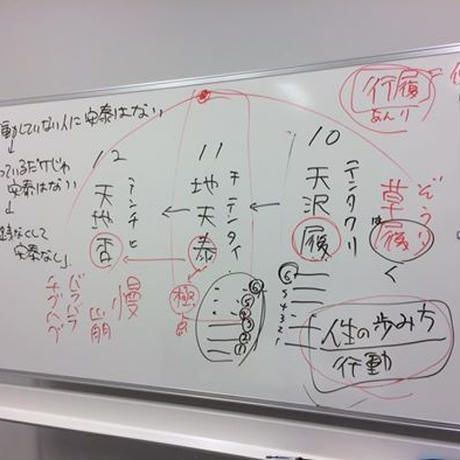 行履
あんり
ぞうり
草履
は
く
10
テンタクリ
天沢履
6
5
4
3
2
1
人生の歩みち
行動
11
チテンタイ
地天泰
極
点
6
5
4
3
2
1
12
テンチヒ
天地否
慢
崩
バラバラ
チグハグ
動していない人に安泰はない
↓
っているだけじゃ
安泰はない
↓
安泰なし」